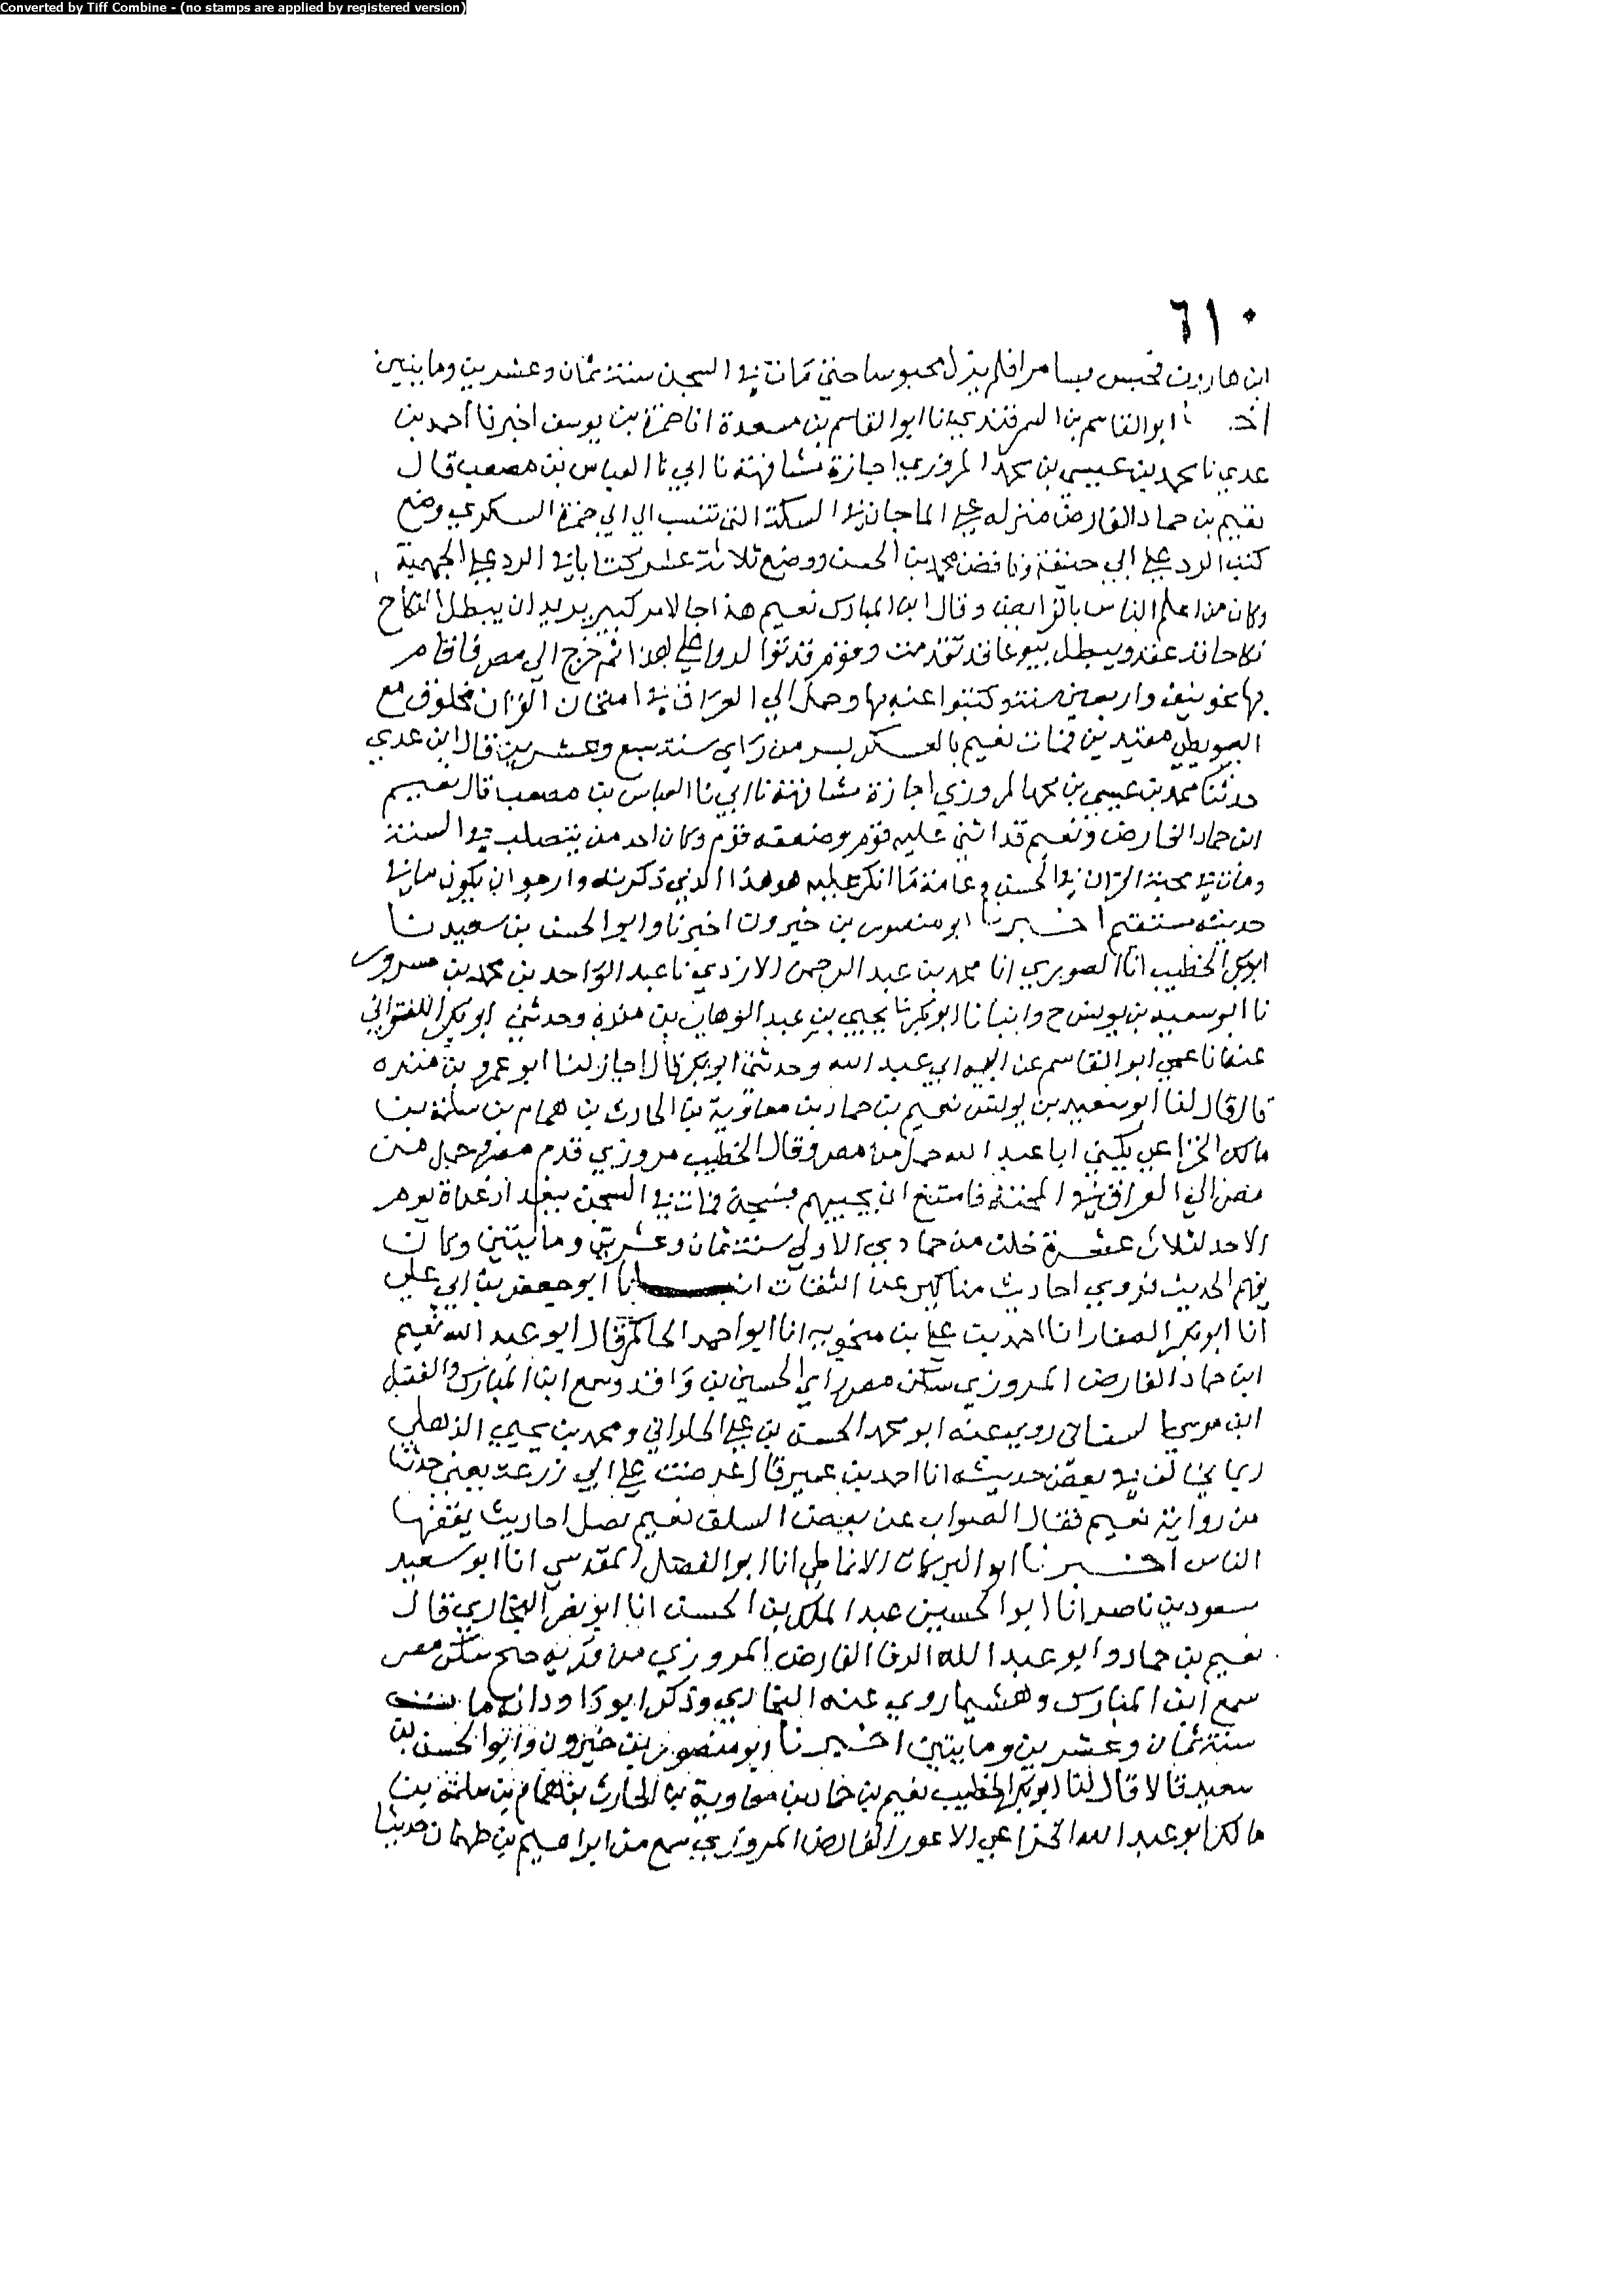 Converted by Tiff Combine - (no stamps are applied by registered version)
٦١٠
ابن هارون فحبس بسامرا فلم يزل محبوسا حتى مات في السجن سنة ثمان وعشرين ومايتين
ابو القاسم بن السمرقندي انا ابو القاسم بن مسعدة انا حمزة بن يوسف اخبرنا احمد بن
عدي نا محمد بن عيسى بن محمد المروزي اجازة مشافهة نا ابي نا العباس بن مصعب قال
نعيم بن حماد الفارض منزله على الماجان في السكة التي تنسب الى ابي حمزة السكري وضع
كتب الرد على ابي حنيفة وناقض محمد بن الحسن ووضع ثلاثة عشر كتابا في الرد على الجهمية
وكان من اعلم الناس بالفرايض وقال ابن المبارك نعيم هذا جا لامر كبير يريد ان يبطل النكاح
نكاحا قد عقد ويبطل بيوعا قد تقدمت وقوم قد توالدوا على هذا ثم خرج الى مصر فاقام
بها نحو نيف واربعين سنة وكتبوا عنه بها وحمل الى العراق في امتحان القران مخلوق مع
البويطي مقيدين فمات نعيم بالعسكر بسر من راي سنة سبع وعشرين قال ابن عدي
حدثنا محمد بن عيسى بن محمد المروزي اجازة مشافهة نا ابي نا العباس بن مصعب قال نعيم
ابن حماد الفارض ونعيم قد اثنى عليه قوم وضعفه قوم وكان احد من يتصلب في السنة
ومات في محنة القران في الحبس وعامة ما انكر عليه هو هذا الذي ذكرته وارجو ان يكون ما في
حديثه مستقيم اخبرنا ابو منصور بن خيرون اخبرنا وابو الحسن بن سعيد نا
ابو بكر الخطيب انا الصوري انا محمد بن عبد الرحمن الازدي نا عبد الواحد بن محمد بن مسرور
نا ابو سعيد بن يونس ح وانبانا ابو بكر نا يحيى بن عبد الوهاب بن منده وحدثني ابو بكر اللفتواني
عنه انا عمي ابو القاسم عن ابيه ابي عبد الله وحدثني ابو بكر قال اجاز لنا ابو عمرو بن منده
قال قال لنا ابو سعيد بن يونس نعيم بن حماد بن معاوية بن الحارث بن همام بن سلمة بن
مالك الخزاعي يكنى ابا عبد الله حمل من مصر وقال الخطيب مروزي قدم مصر حمل من
مصر الى العراق في المحنة فامتنع ان يجيبهم فسجن فمات في السجن ببغداد غداة يوم
الاحد لثلاث عشرة خلت من جمادي الاولى سنة ثمان وعشرين ومايتين وكان
يفهم الحديث فروى احاديث مناكير عن الثقات انبانا ابو جعفر بن ابي علي
انا ابو بكر الصفار انا احمد بن علي بن منجويه انا ابو احمد الحاكم قال ابو عبد الله نعيم
ابن حماد الفارض المروزي سكن مصر راي الحسين بن واقد وسمع ابن المبارك والفضل
ابن موسى السيناني روى عنه ابو محمد الحسن بن علي الحلواني ومحمد بن يحيى الذهلي
ربما يخالف في بعض حديثه انا احمد بن عمير قال عرضت على ابي زرعة يعني حديثا
من رواية نعيم فقال الصواب عن بعض السلف نعيم يصل احاديث يقفها
الناس اخبرنا ابو البركات الانماطي انا ابو الفضل المقدسي انا ابو سعيد
مسعود بن ناصر انا ابو الحسين عبد الملك بن الحسن انا ابو نصر البخاري قال
نعيم بن حماد وابو عبد الله الرفا الفارض المروزي من قرية سكن مصر
سمع ابن المبارك وهشيما روى عنه البخاري وذكر ابو داود انه مات
سنة ثمان وعشرين ومايتين اخبرنا ابو منصور بن خيرون وابو الحسن بن
سعيد قالا قال لنا ابو بكر الخطيب نعيم بن حماد بن معاوية بن الحارث بن همام بن سلمة بن
مالك ابو عبد الله الخزاعي الاعور الفارض المروزي سمع من ابراهيم بن طهمان حديثا